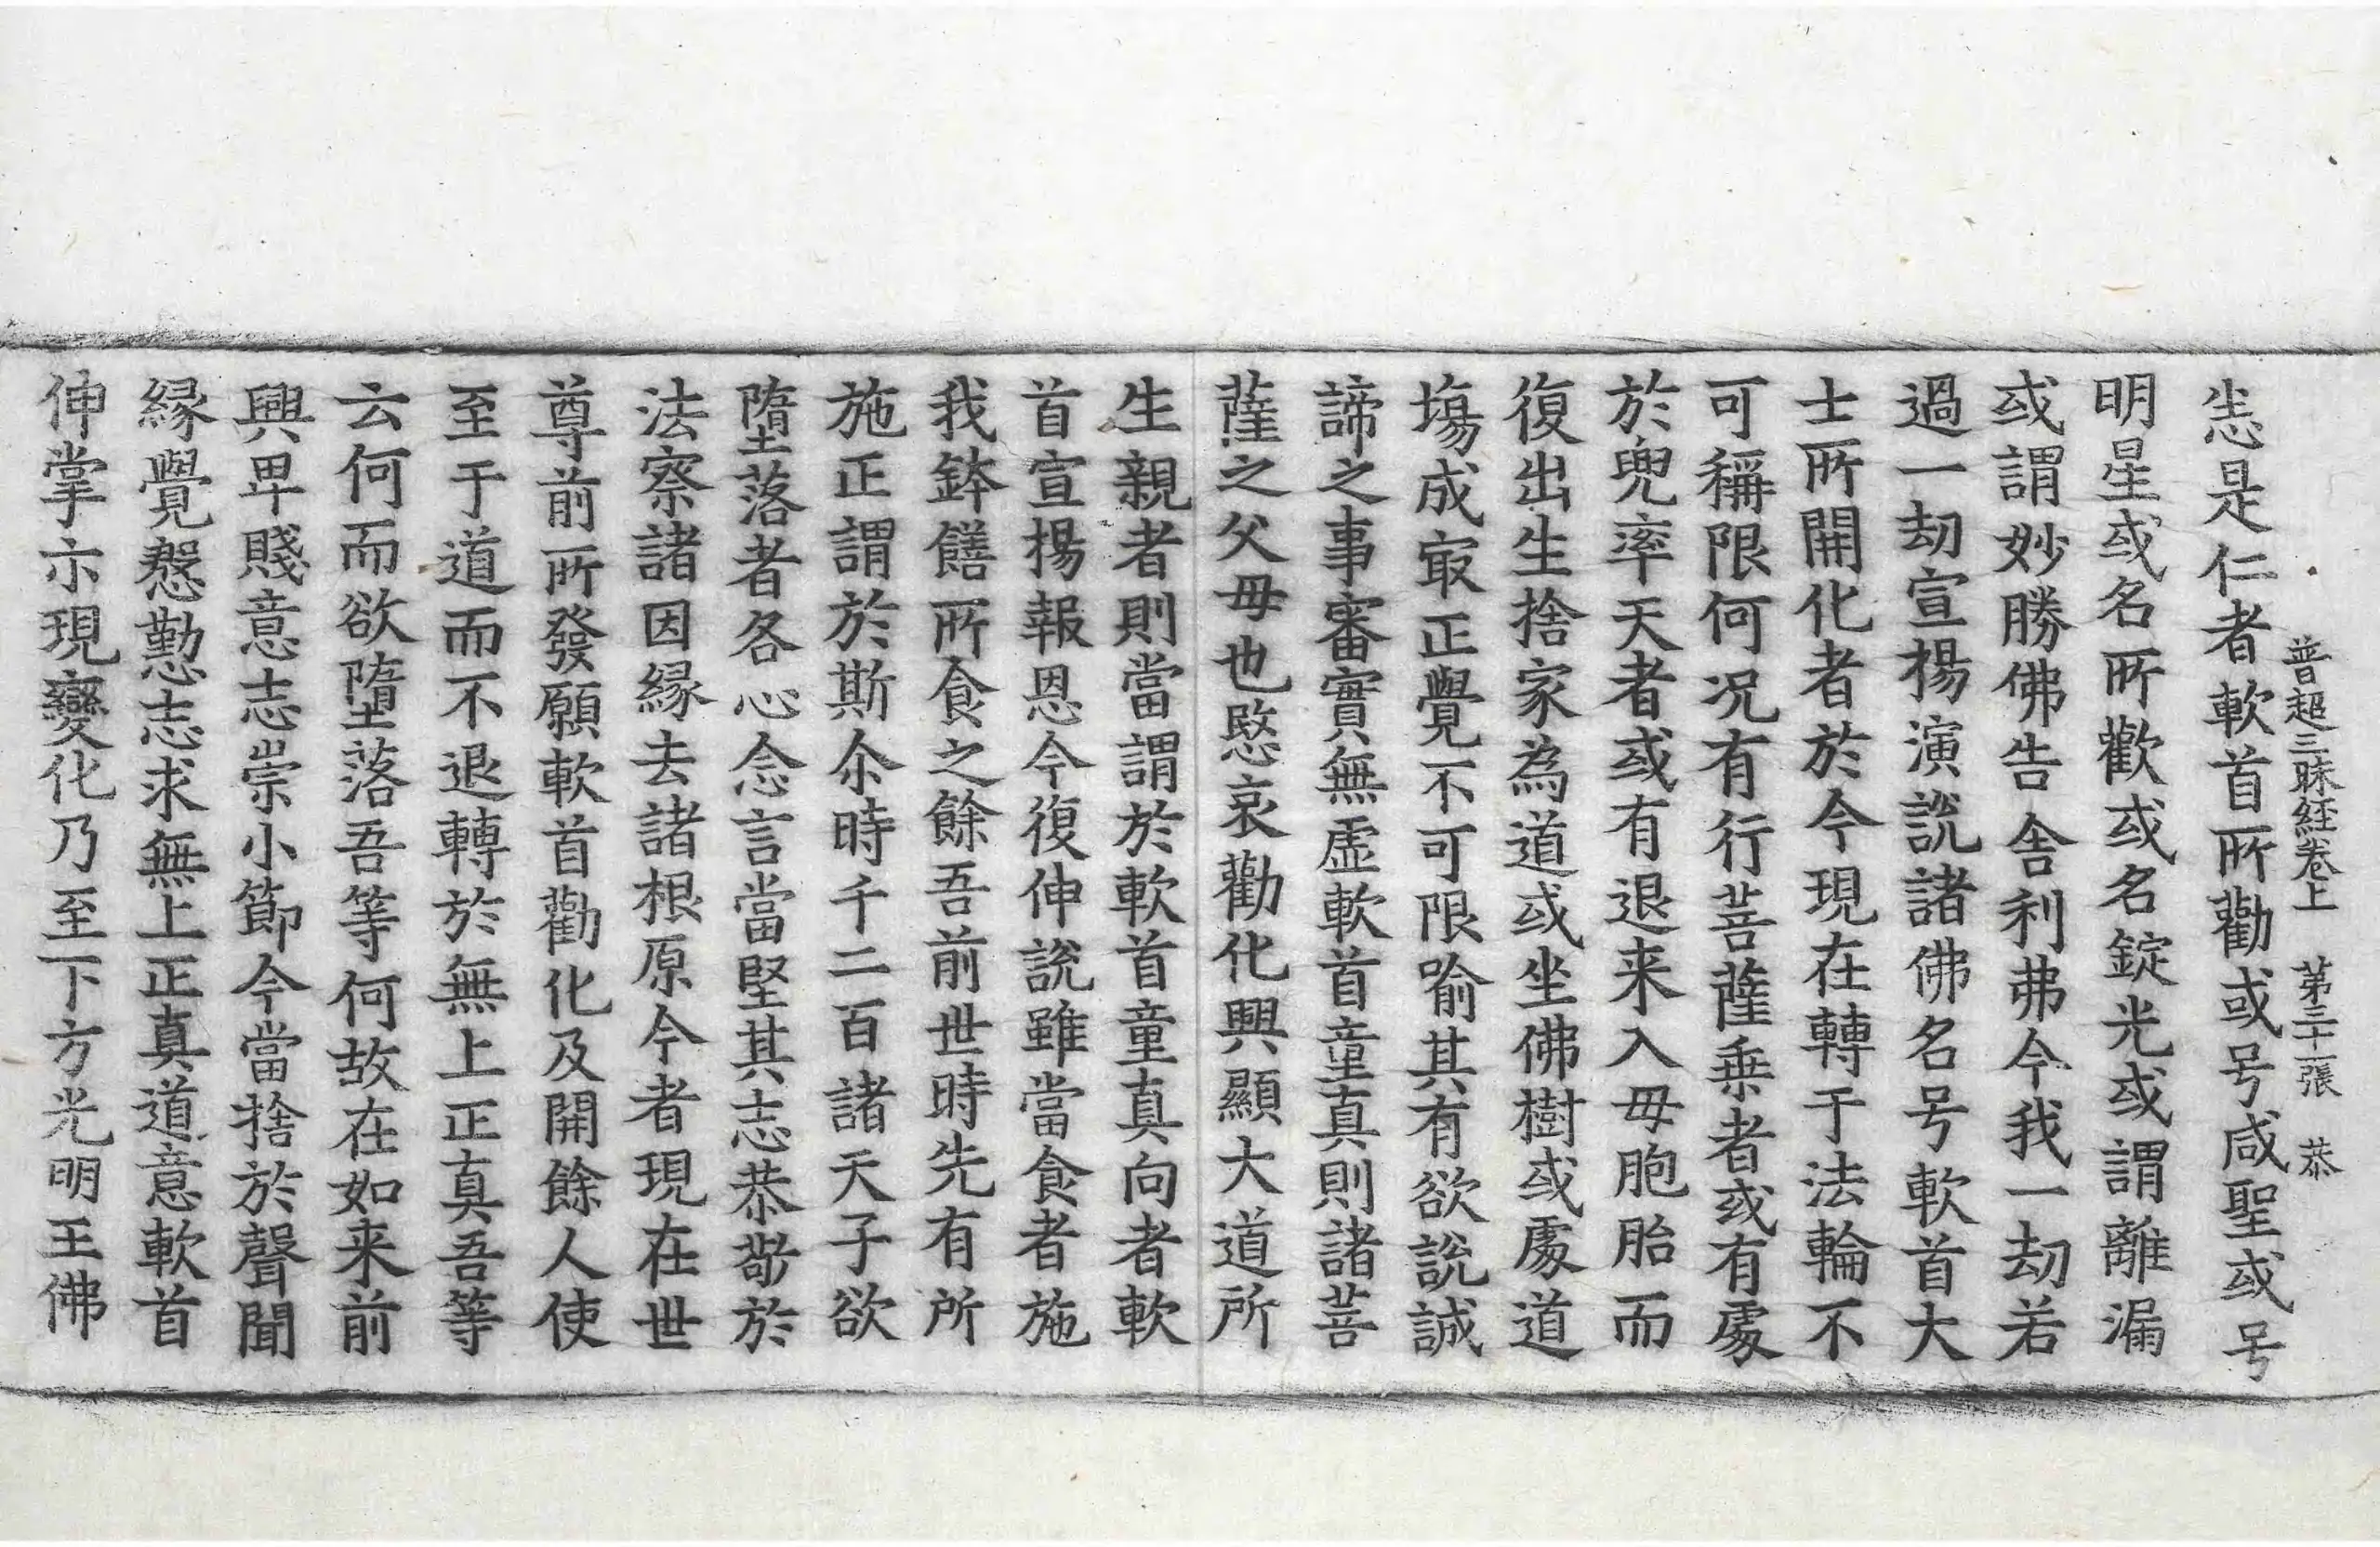 普超三昧経巻上 第三十一張 恭
恙是仁者軟首所勸或号咸聖或号
明星或名所歡或名錠光或謂離漏
或謂妙勝佛告舎利弗今我一劫若
過一劫宣揚演説諸佛名号軟首大
士所開化者於今現在轉于法輪不
可稱限何况有行菩薩乗者或有處
於兜率天者或有退来入母胞胎而
復出生捨家為道或坐佛樹或處道
塲成㝡正覺不可限喻其有欲説誠
諦之事審實無虚軟首童真則諸菩
薩之父母也愍哀勸化興顯大道所
生親者則當謂於軟首童真向者軟
首宣揚報恩今復伸説雖當食者施
我鉢饍所食之餘吾前世時先有所
施正謂於斯尒時千二百諸天子欲
墮落者各心念言當堅其志恭敬於
法察諸因縁去諸根原今者現在世
尊前所發願軟首勸化及開餘人使
至于道而不退轉於無上正真吾等
云何而欲墮落吾等何故在如来前
興卑賤意志崇小節今當捨於聲聞
縁覺慇懃志求無上正真道意軟首
伸掌示現變化乃至下方光明王佛